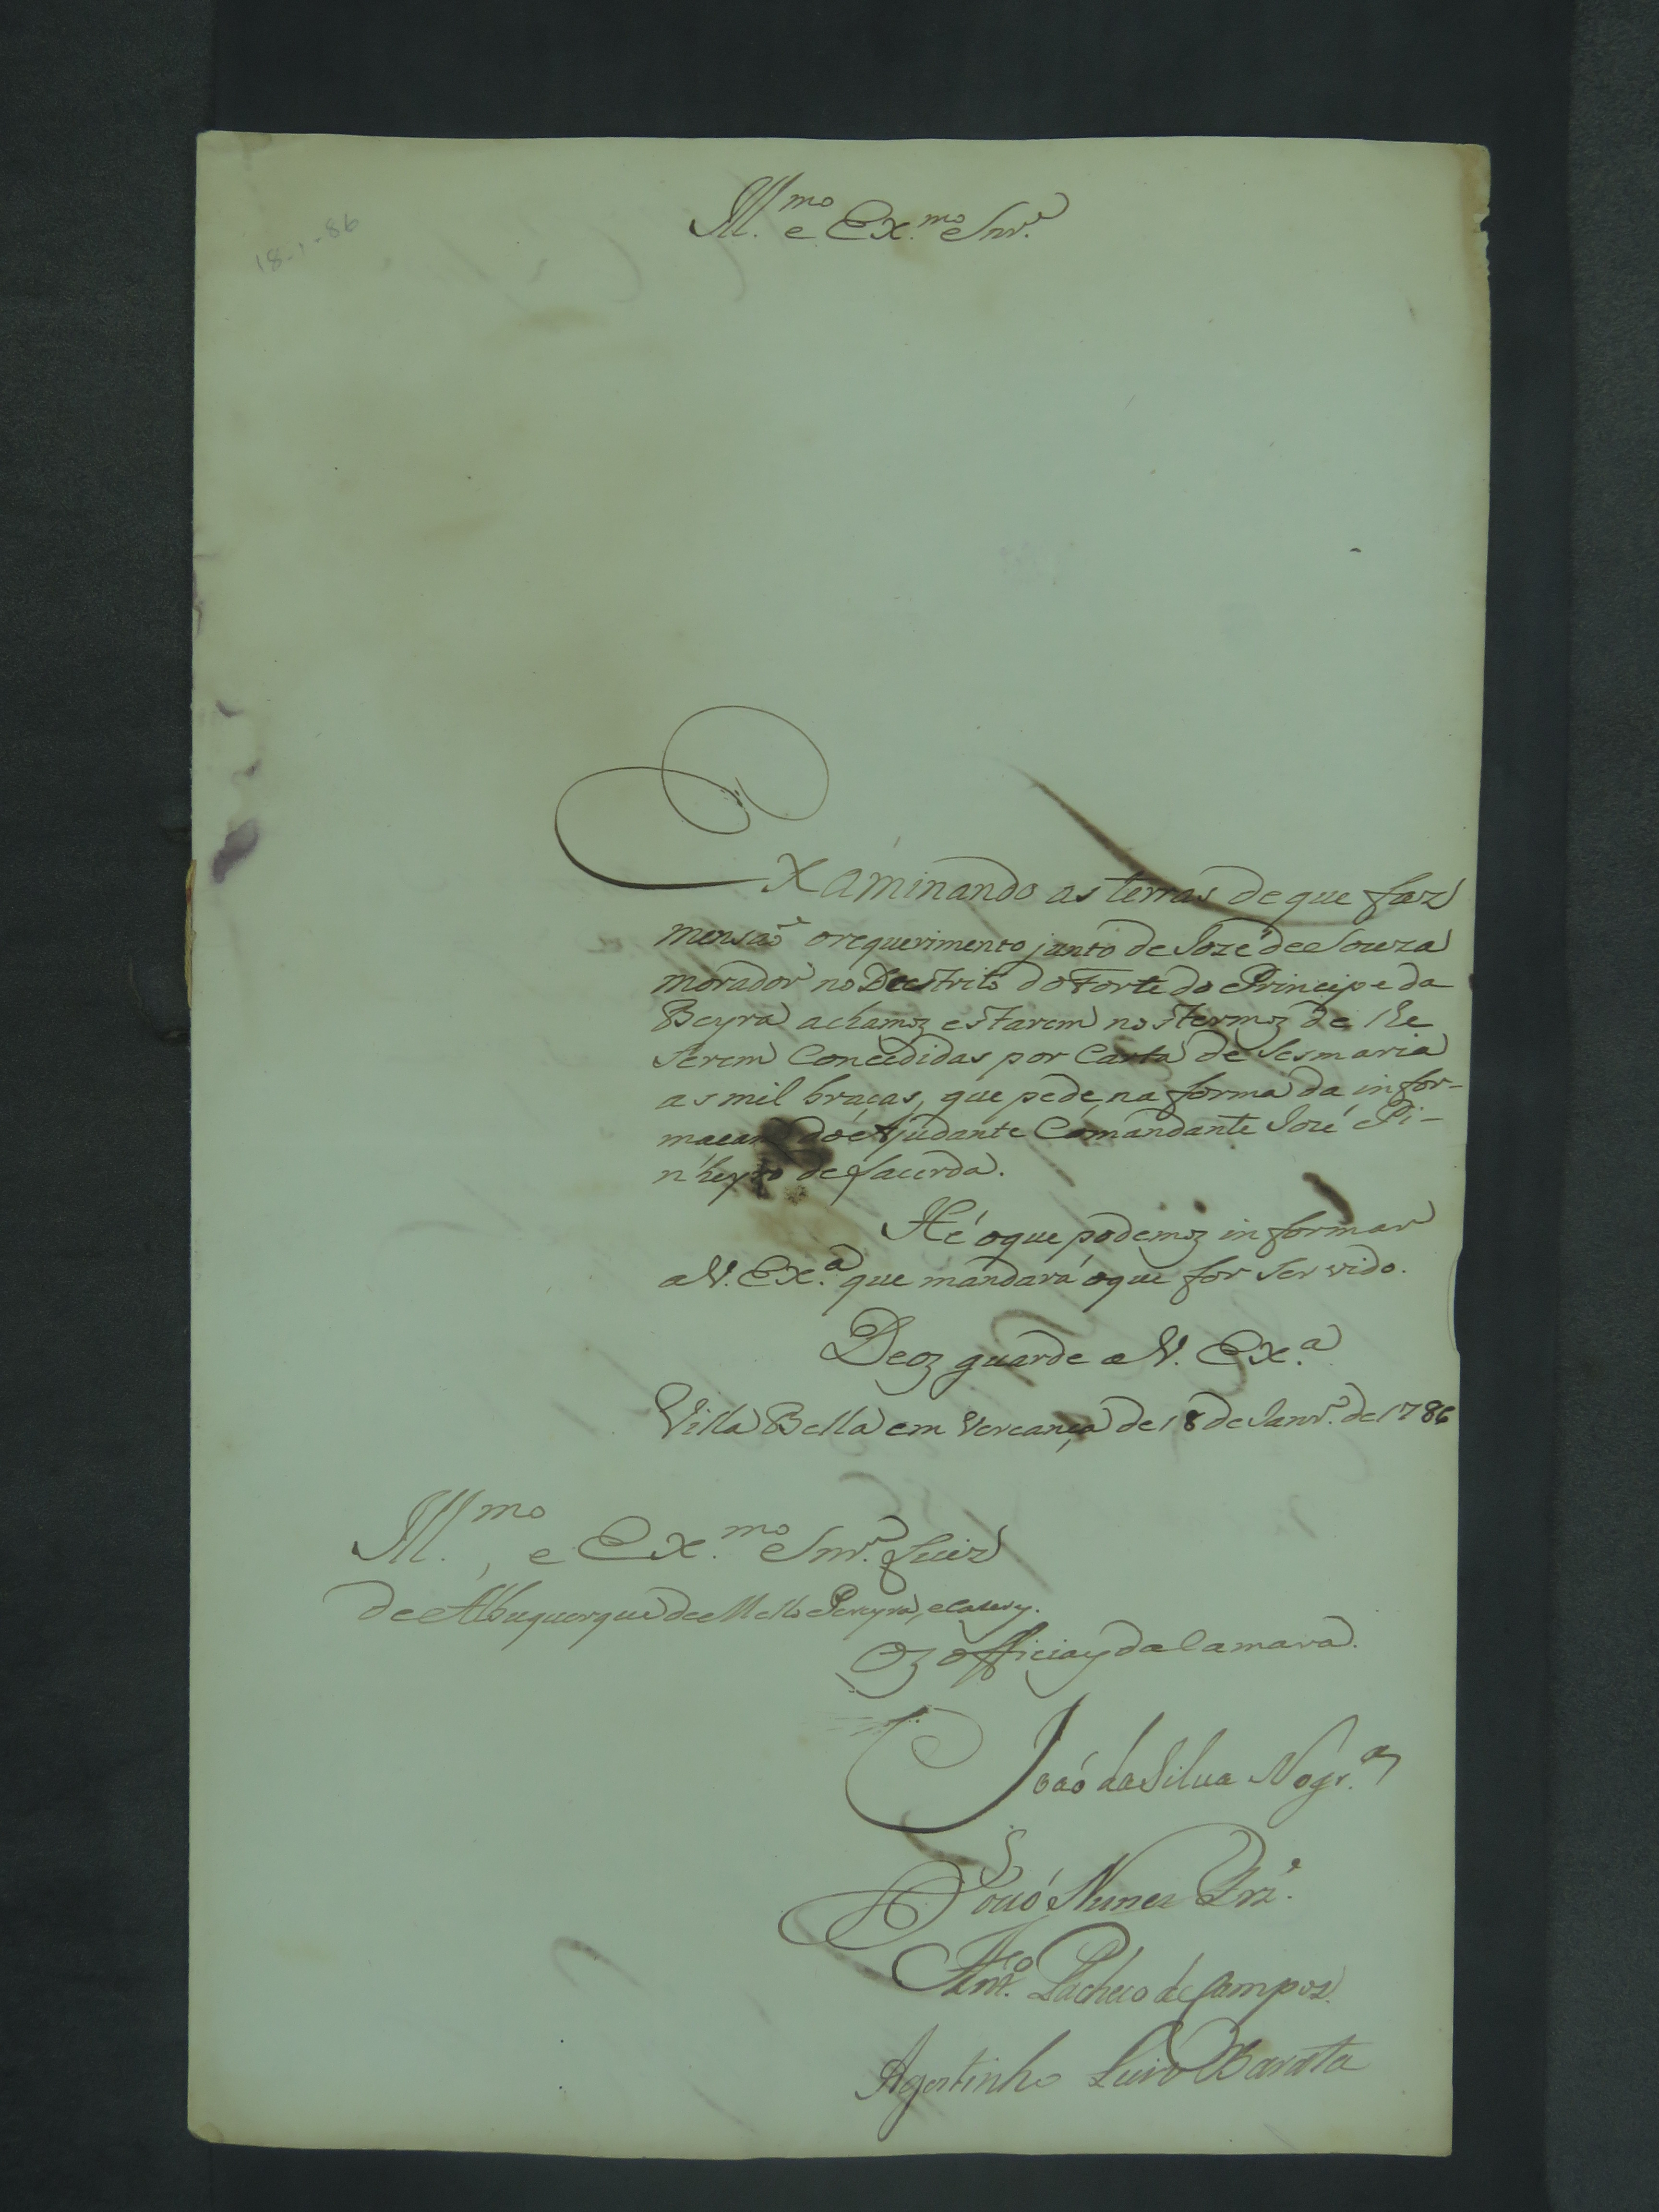 18-1-86
Ill.mo e Ex.mo Snr.
Examinando as terras de que faz
mensaõ o requerimento junto de Jozé de Souza
morador no Destrito do Forte do Principe da
Beyra achamoz estarem nos termoz de lhe
serem Concedidas por Carta de Sesmaria
as mil braças, que pede, na forma da infor-
macam do Ajudante Comandante José Pi-
nheyro de Lacerda.
Hé o que podemoz informar
a V. Ex.a que mandará o que for servido.
Deoz guarde a V. Ex.a
Villa Bella em Vereança de 18 de Janr.o de 1786
Ill.mo, e Ex.mo Snr. Luiz
de Albuquerque de Mello Pereyra, e Caserez.
Oz officiaez da Camara.
Joaó da Silua Nogr.a
Joaó Nunez
Ant.o Pacheco de Campos
Agostinho Luiz Barata